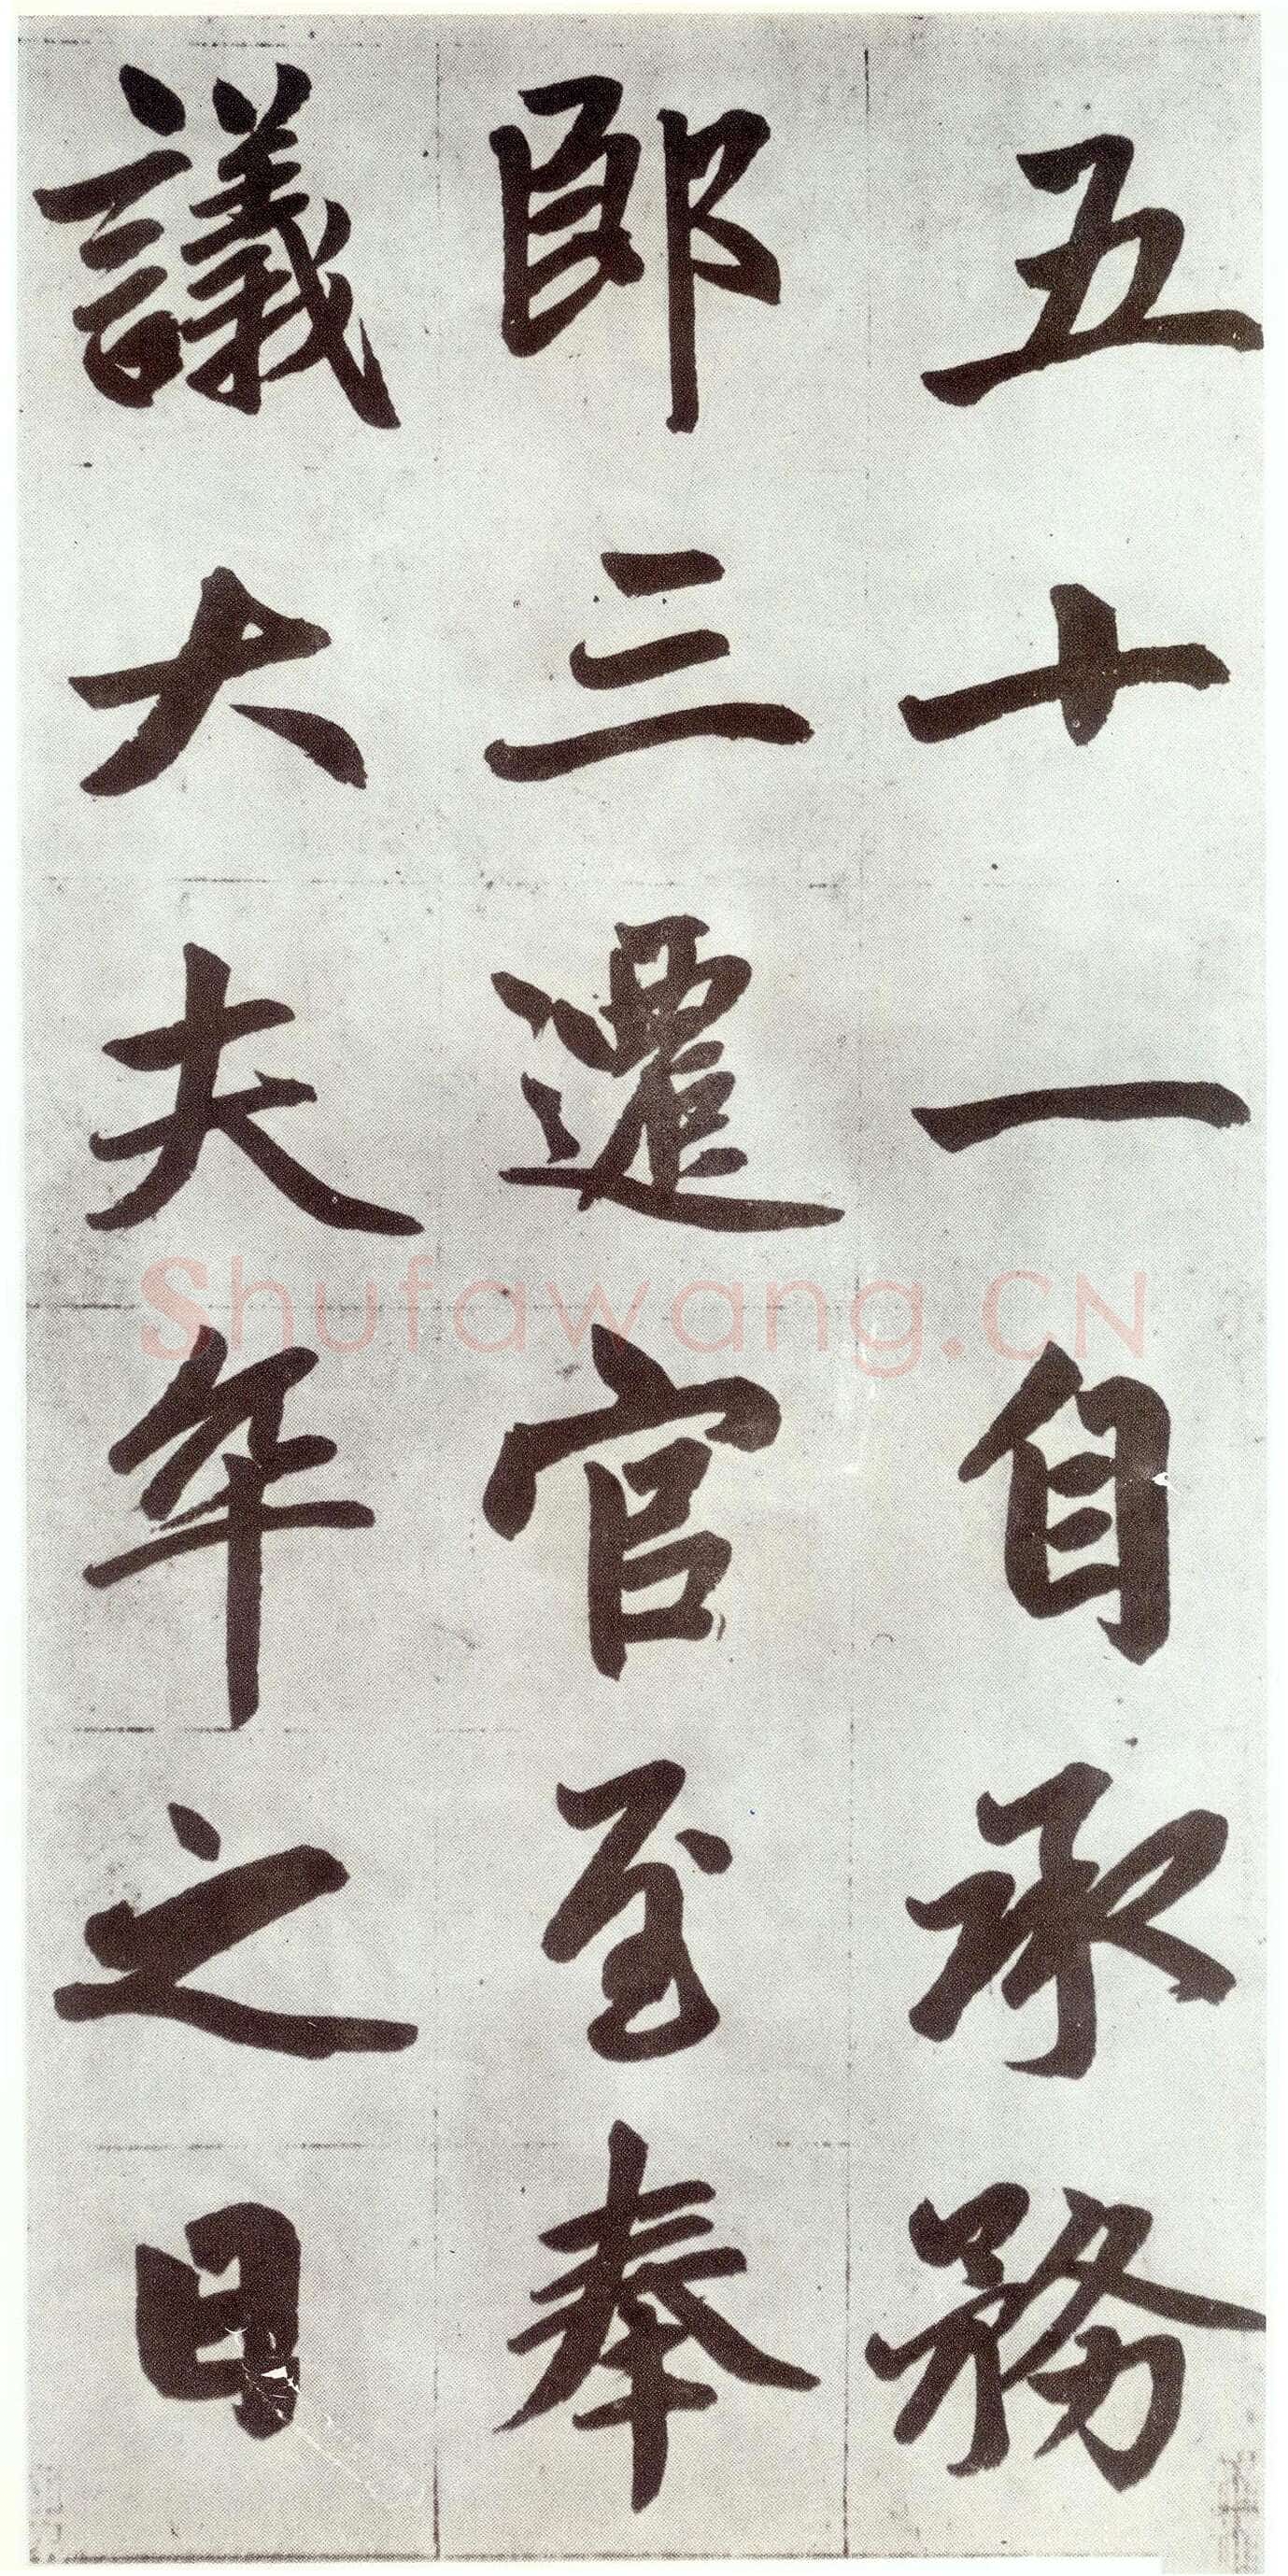 五十一自承務
郎三遷官至奉
議大夫卒之日
Shufawang.CN